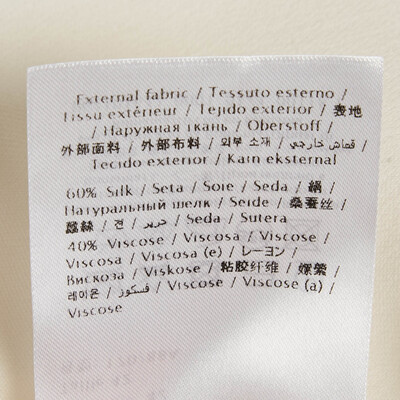 External fabric / Tessuto esterno /
Tissu extérieur / Tejido exterior / 表地
/ Наружная ткань / Oberstoff /
外部面料 / 外部布料 / 외부 소재 / قماش خارجي /
Tecido exterior / Kain eksternal
60% Silk / Seta / Soie / Seda / 絹 /
Натуральный шелк / Seide / 桑蚕丝 /
蠶絲 / 견 / حرير / Seda / Sutera
40% Viscose / Viscosa / Viscose /
Viscosa / Viscosa (e) / レーヨン /
Вискоза / Viskose / 粘胶纤维 / 嫘縈 /
레이온 / فسكوز / Viscose / Viscose (a) /
Viscose